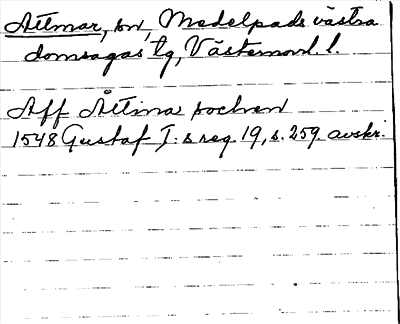 Attmar, sn, Medelpads västra
domsagas tg, Västernorrl. l.
Aff Åttma sochen
1548 Gustaf I:s reg. 19, s. 259. avskr.